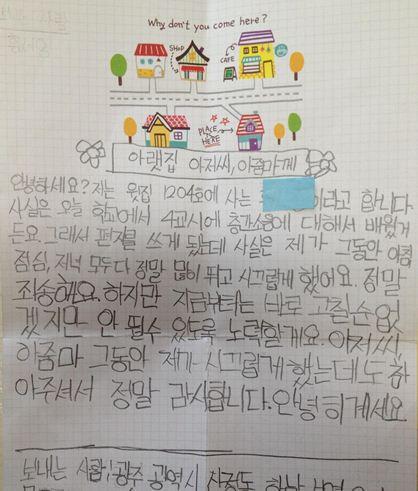 Why don't you come here?
SHOP
CAFE
PLACE HERE
아랫집 아저씨, 아줌마께
안녕하세요? 저는 윗집 1204호에 사는 이라고 합니다.
사실은 오늘 학교에서 4교시에 층간소음에 대해서 배웠거
든요. 그래서 편지를 쓰게 됐는데 사실은 제가 그동안 아침
점심, 저녁 모두 다 정말 많이 뛰고 시끄럽게 했어요. 정말
죄송해요. 하지만 지금부터는 바로 고칠 순 없
겠지만 안 뛸 수 있도록 노력할게요. 아저씨,
아줌마 그동안 제가 시끄럽게 했는데도 참
아주셔서 정말 감사합니다. 안녕히계세요
보내는 사람: 광주 광역시